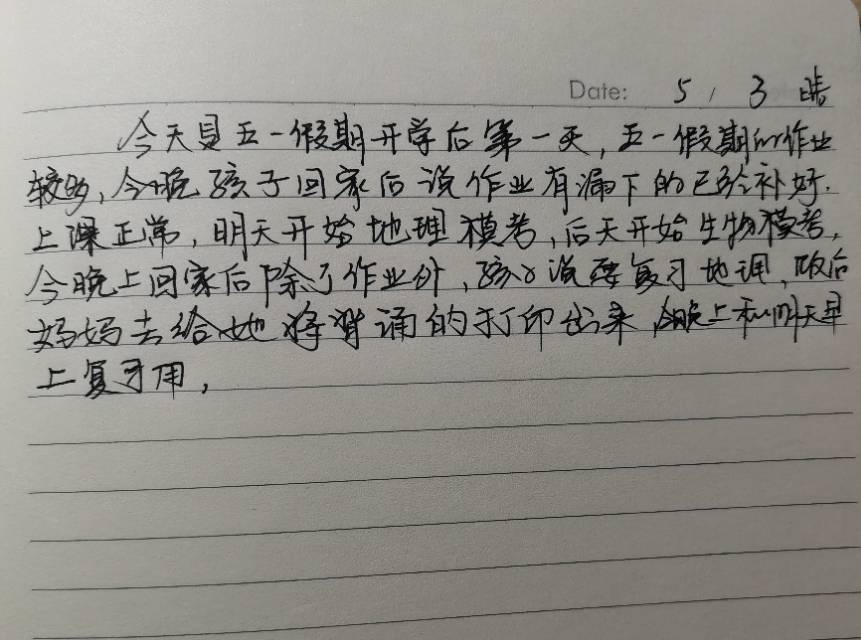 Date: 5 / 3 晴
今天是五一假期开学后第一天,五一假期的作业
较多,今晚孩子回家后说作业有漏下的已经补好.
上课正常,明天开始地理模考,后天开始生物模考,
今晚上回家后除了作业外,孩子说要复习地理,饭后
妈妈去给她将背诵的打印出来,今晚上和明天早
上复习用,